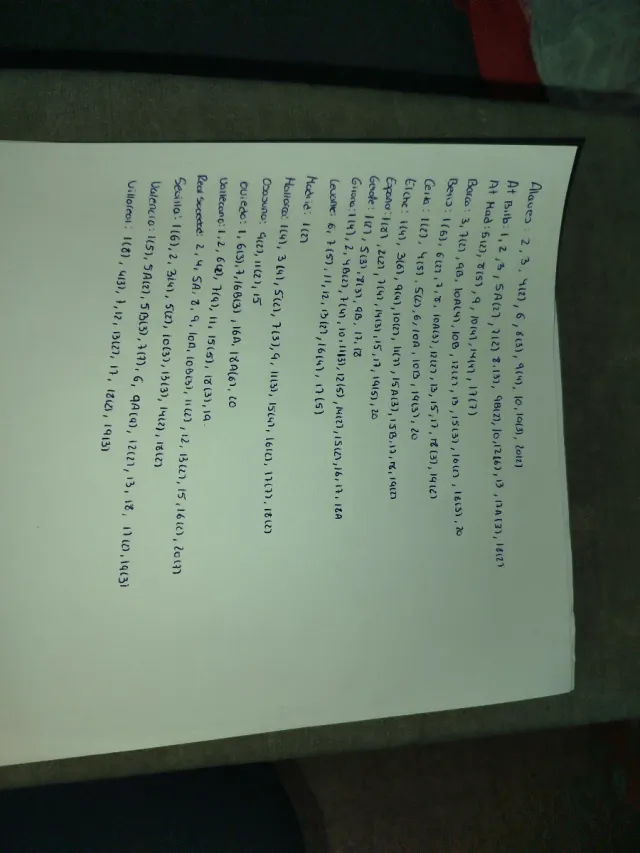 Alaves: 2, 3, 4(2), 6, 8(3), 9(4), 10, 19(3), 20(2)
At Bilb: 1, 2, 3, 5A(2), 7(2) 8(3), 9B(2), 10, 12(6), 13, 17A(3), 18(2)
At Mad: 6(2), 8(5), 9, 10(4), 14(4), 17(7)
Barca: 3, 7(2), 9B, 10A(4), 10B, 12(2), 13, 15(3), 16(2), 18(3), 20
Betis: 1(6), 6(2), 7, 8, 10A(3), 12(2), 13, 15, 17, 18(3), 19(2)
Celta: 1(2), 4(5), 5(2), 6, 10A, 10B, 19(3), 20
Elche: 1(4), 3(6), 9(4), 10(2), 11(7), 15A(3), 15B, 17, 18, 19(2)
Español: 1(8), 2(2), 7(4), 14(3), 15, 17, 19(5), 20
Getafe: 1(2), 5(3), 8(3), 9B, 17, 18
Girona: 1(4), 2, 4B(2), 7(4), 10, 11(3), 12(5), 14(2), 15(2), 16, 17, 18A
Levante: 6, 7(5), 11, 12, 13(2), 16(4), 17(5)
Madrid: 1(2)
Mallorca: 1(4), 3(4), 5(2), 7(3), 9, 11(3), 15(4), 16(2), 17(7), 18(2)
Osasuna: 9(2), 11(2), 15
Oviedo: 1, 6(3), 7, 16B(3), 16A, 18A(6), 20
Vallecano: 1, 2, 6(2), 7(4), 11, 15(5), 18(3), 19
Real Sociedad: 2, 4, 5A, 8, 9, 10A, 10B(3), 11(2), 12, 13(2), 15, 16(2), 20(7)
Sevilla: 1(6), 2, 3(4), 5(2), 10(3), 13(3), 14(2), 18(2)
Valencia: 1(5), 5A(2), 5B(3), 7(7), 6, 9A(4), 12(2), 13, 18, 17(2), 19(3)
Villareal: 1(8), 4(3), 7, 12, 13(2), 17, 18(2), 19(3)